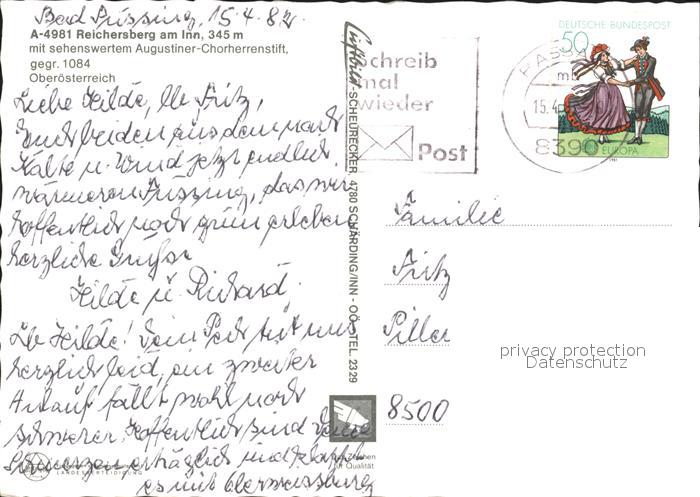 Bad Füssing, 15.4.82.
A-4981 Reichersberg am Inn, 345 m
mit sehenswertem Augustiner-Chorherrenstift,
gegr. 1084
Oberösterreich
Liebe Hilde, lb. Fritz,
Euch beiden aus dem nach
Kälte u. Wind jetzt endlich
wärmeren Füssing, das wir
hoffentlich noch grün erleben
herzliche Grüße
Hilde u. Richard.
Lb. Hilde! Dein Pech tut uns
herzlich leid, ein zweiter
Anlauf fällt wohl noch
schwerer. Hoffentlich sind Deine
Schmerzen erträglich und klappt
es mit
LANDESVERTEIDIGUNG
Luftbild-SCHEURECKER, 4780 SCHÄRDING/INN - OÖ STEL. 2329
Zeichen
für Qualität
Schreib
mal
wieder
Post
PASSA
mb
15.4.
8390
DEUTSCHE BUNDESPOST
50
EUROPA
1981
Familie
Fritz
Piller
8500
privacy protection
Datenschutz